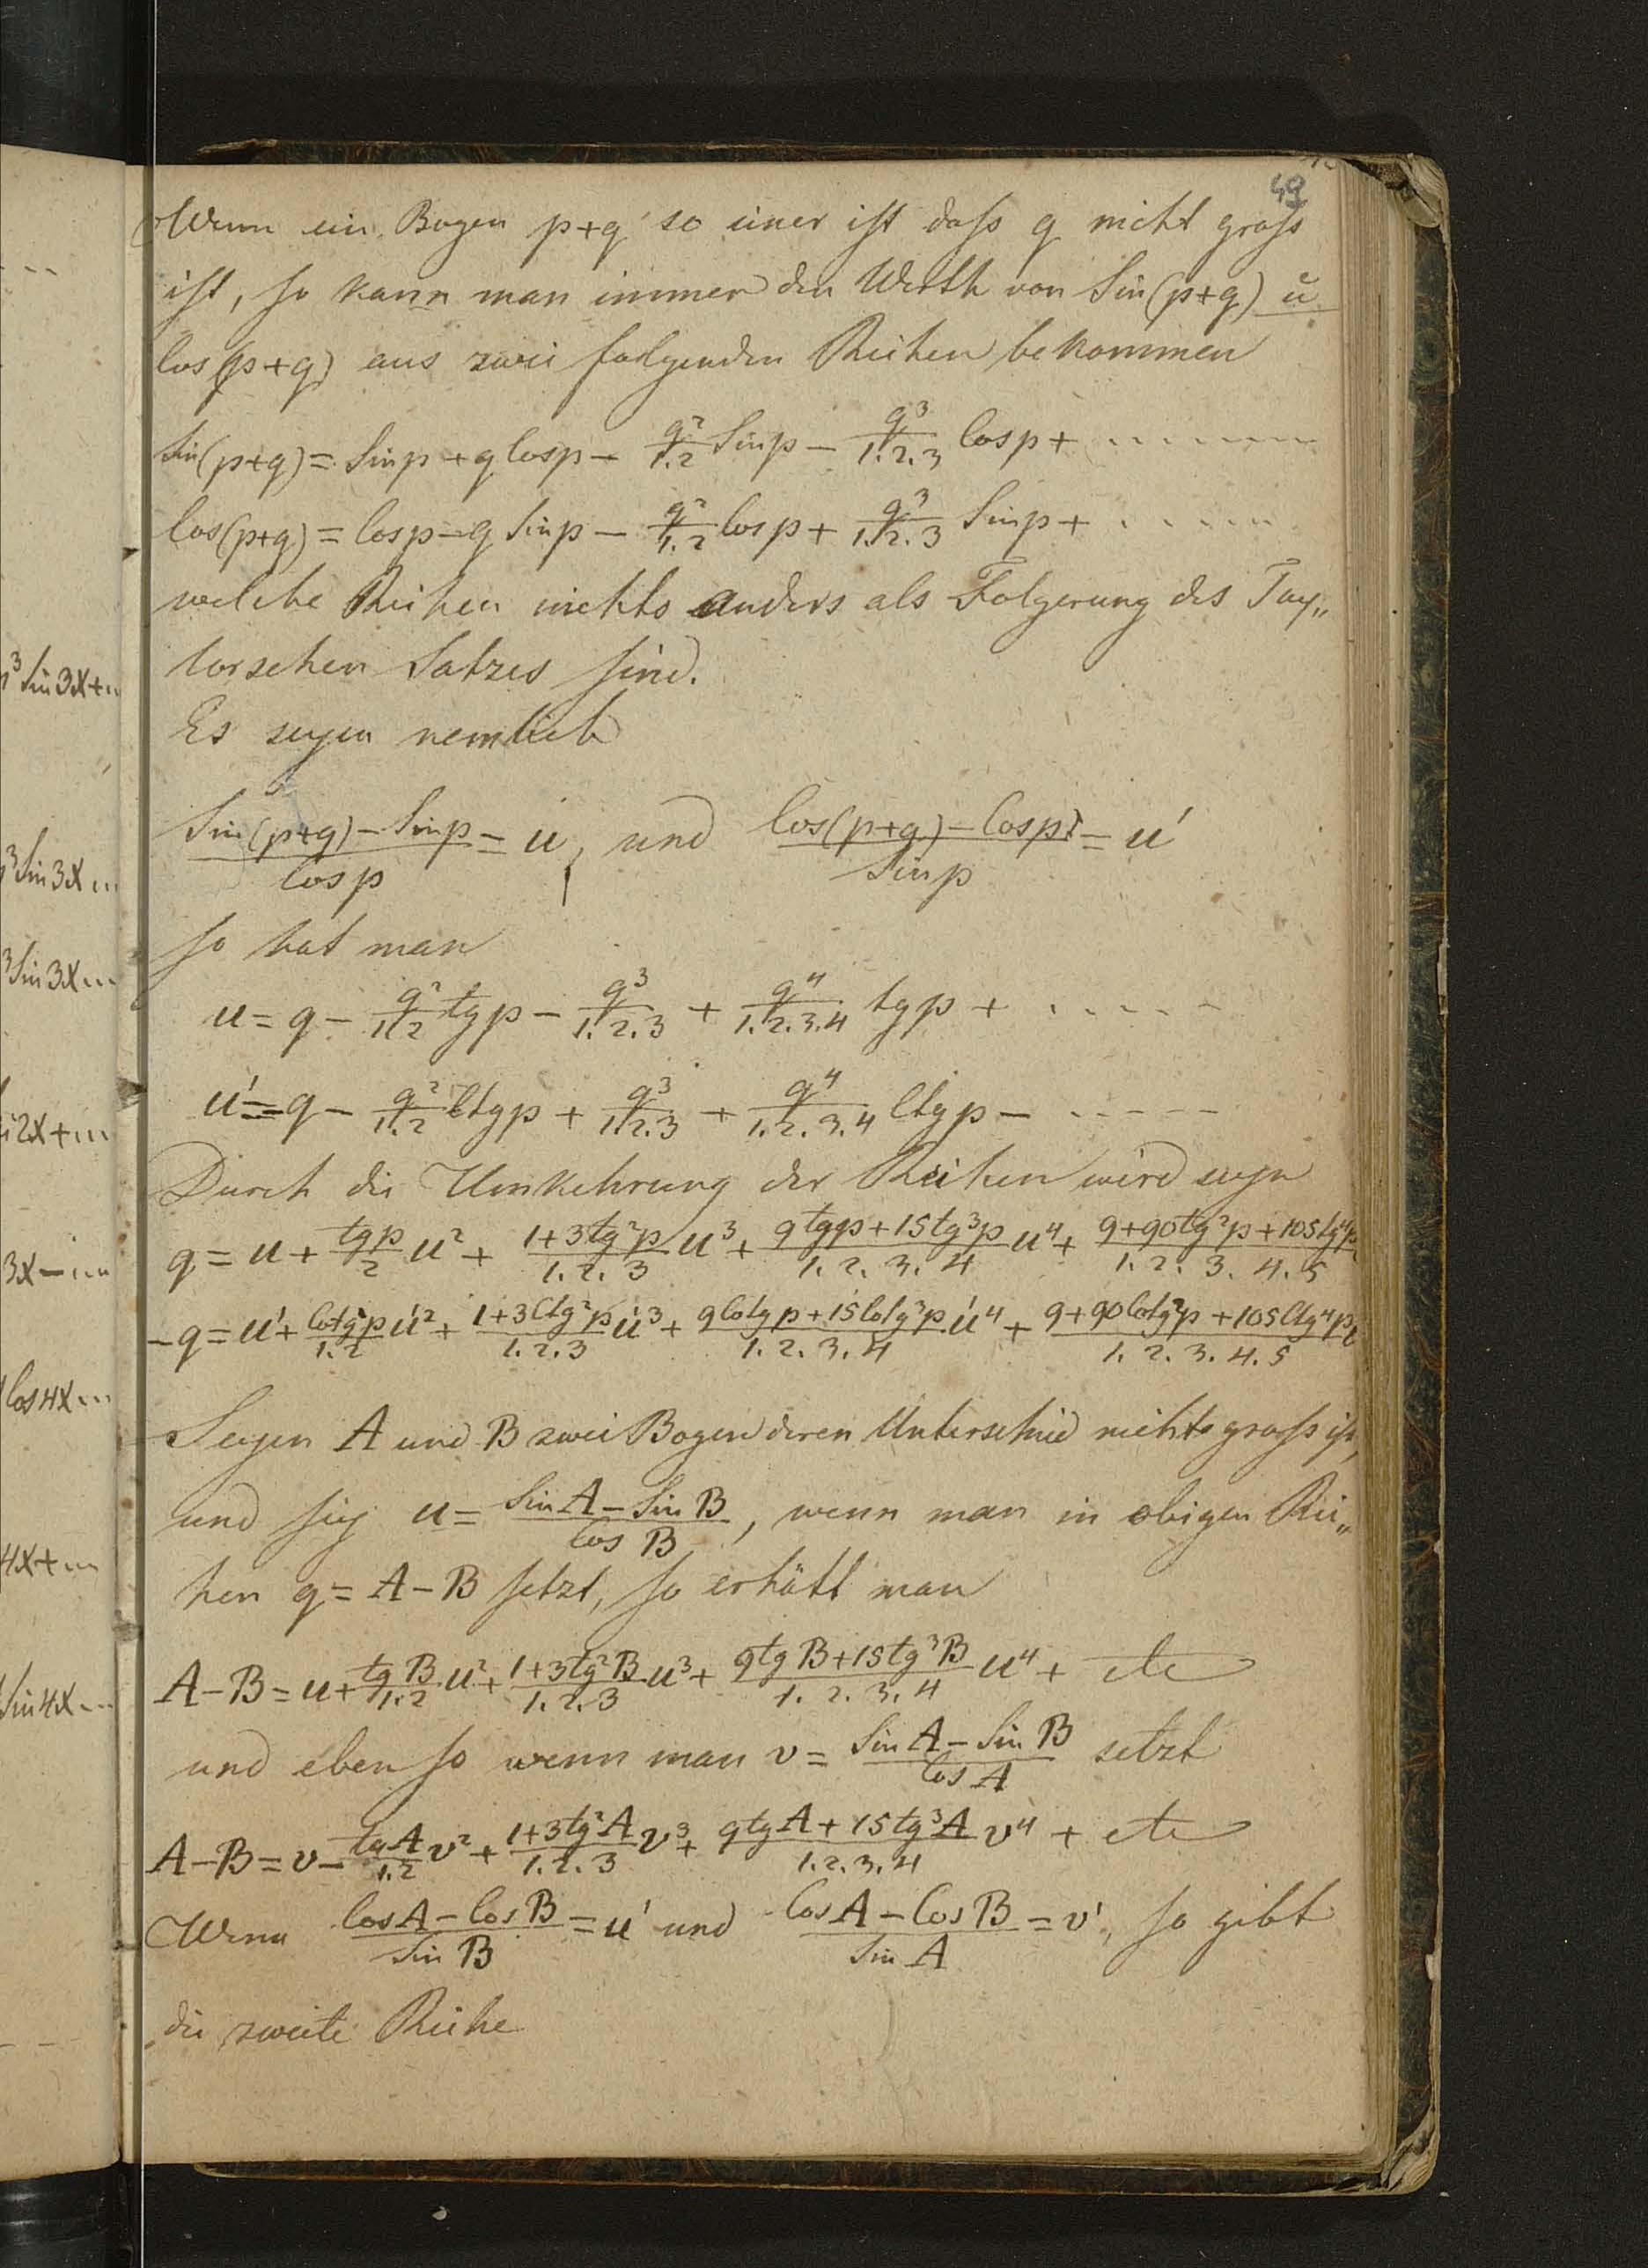 49
Wenn ein Bogen p+q so einer ist daſs q nicht groſs
ist, so kann man immer den Werth von Sin(p+q) u
Cos(p+q) aus zwei folgenden Reihen bekommen
Sin(p+q) = Sin p + q Cos p − q²/1.2 Sin p − q³/1.2.3 Cos p + ........
Cos(p+q) = Cos p − q Sin p − q²/1.2 Cos p + q³/1.2.3 Sin p + ......
welche Reihen nichts anders als Folgerung des Tay„
lorschen Satzes sind.
Es seyen nemlich
(Sin(p+q) − Sin p)/Cos p = u, und (Cos(p+q) − Cos p)/Sin p = u'
so hat man
u = q − q²/1.2 tg p − q³/1.2.3 + q⁴/1.2.3.4 tg p + .....
u' = q − q²/1.2 Ctg p + q³/1.2.3 + q⁴/1.2.3.4 Ctg p − .....
Durch die Umkehrung der Reihen wird seyn
q = u + tg p/2 u² + (1+3tg²p)/1.2.3 u³ + (9tg p+15tg³p)/1.2.3.4 u⁴ + (9+90tg²p+105tg⁴p)/1.2.3.4.5
−q = u' + Cotg p/1.2 u'² + (1+3Ctg²p)/1.2.3 u'³ + (9Cotg p+15Cotg³p)/1.2.3.4 u'⁴ + (9+90Cotg²p+105Ctg⁴p)/1.2.3.4.5
Seyen A und B zwei Bogen deren Unterschied nicht groſs ist,
und sey u = (Sin A − Sin B)/Cos B, wenn man in obigen Rei„
hen q = A − B setzt, so erhält man
A−B = u + tg B/1.2 u² + (1+3tg²B)/1.2.3 u³ + (9tg B+15tg³B)/1.2.3.4 u⁴ + etc
und eben so wenn man v = (Sin A − Sin B)/Cos A setzt
A−B = v − tg A/1.2 v² + (1+3tg²A)/1.2.3 v³ + (9tg A+15tg³A)/1.2.3.4 v⁴ + etc
Wenn (Cos A − Cos B)/Sin B = u' und (Cos A − Cos B)/Sin A = v', so gibt
die zweite Reihe
³Sin3x+..
³Sin3x...
³Sin3x...
2x+...
3x−...
Cos4x...
4x+...
Sin4x...